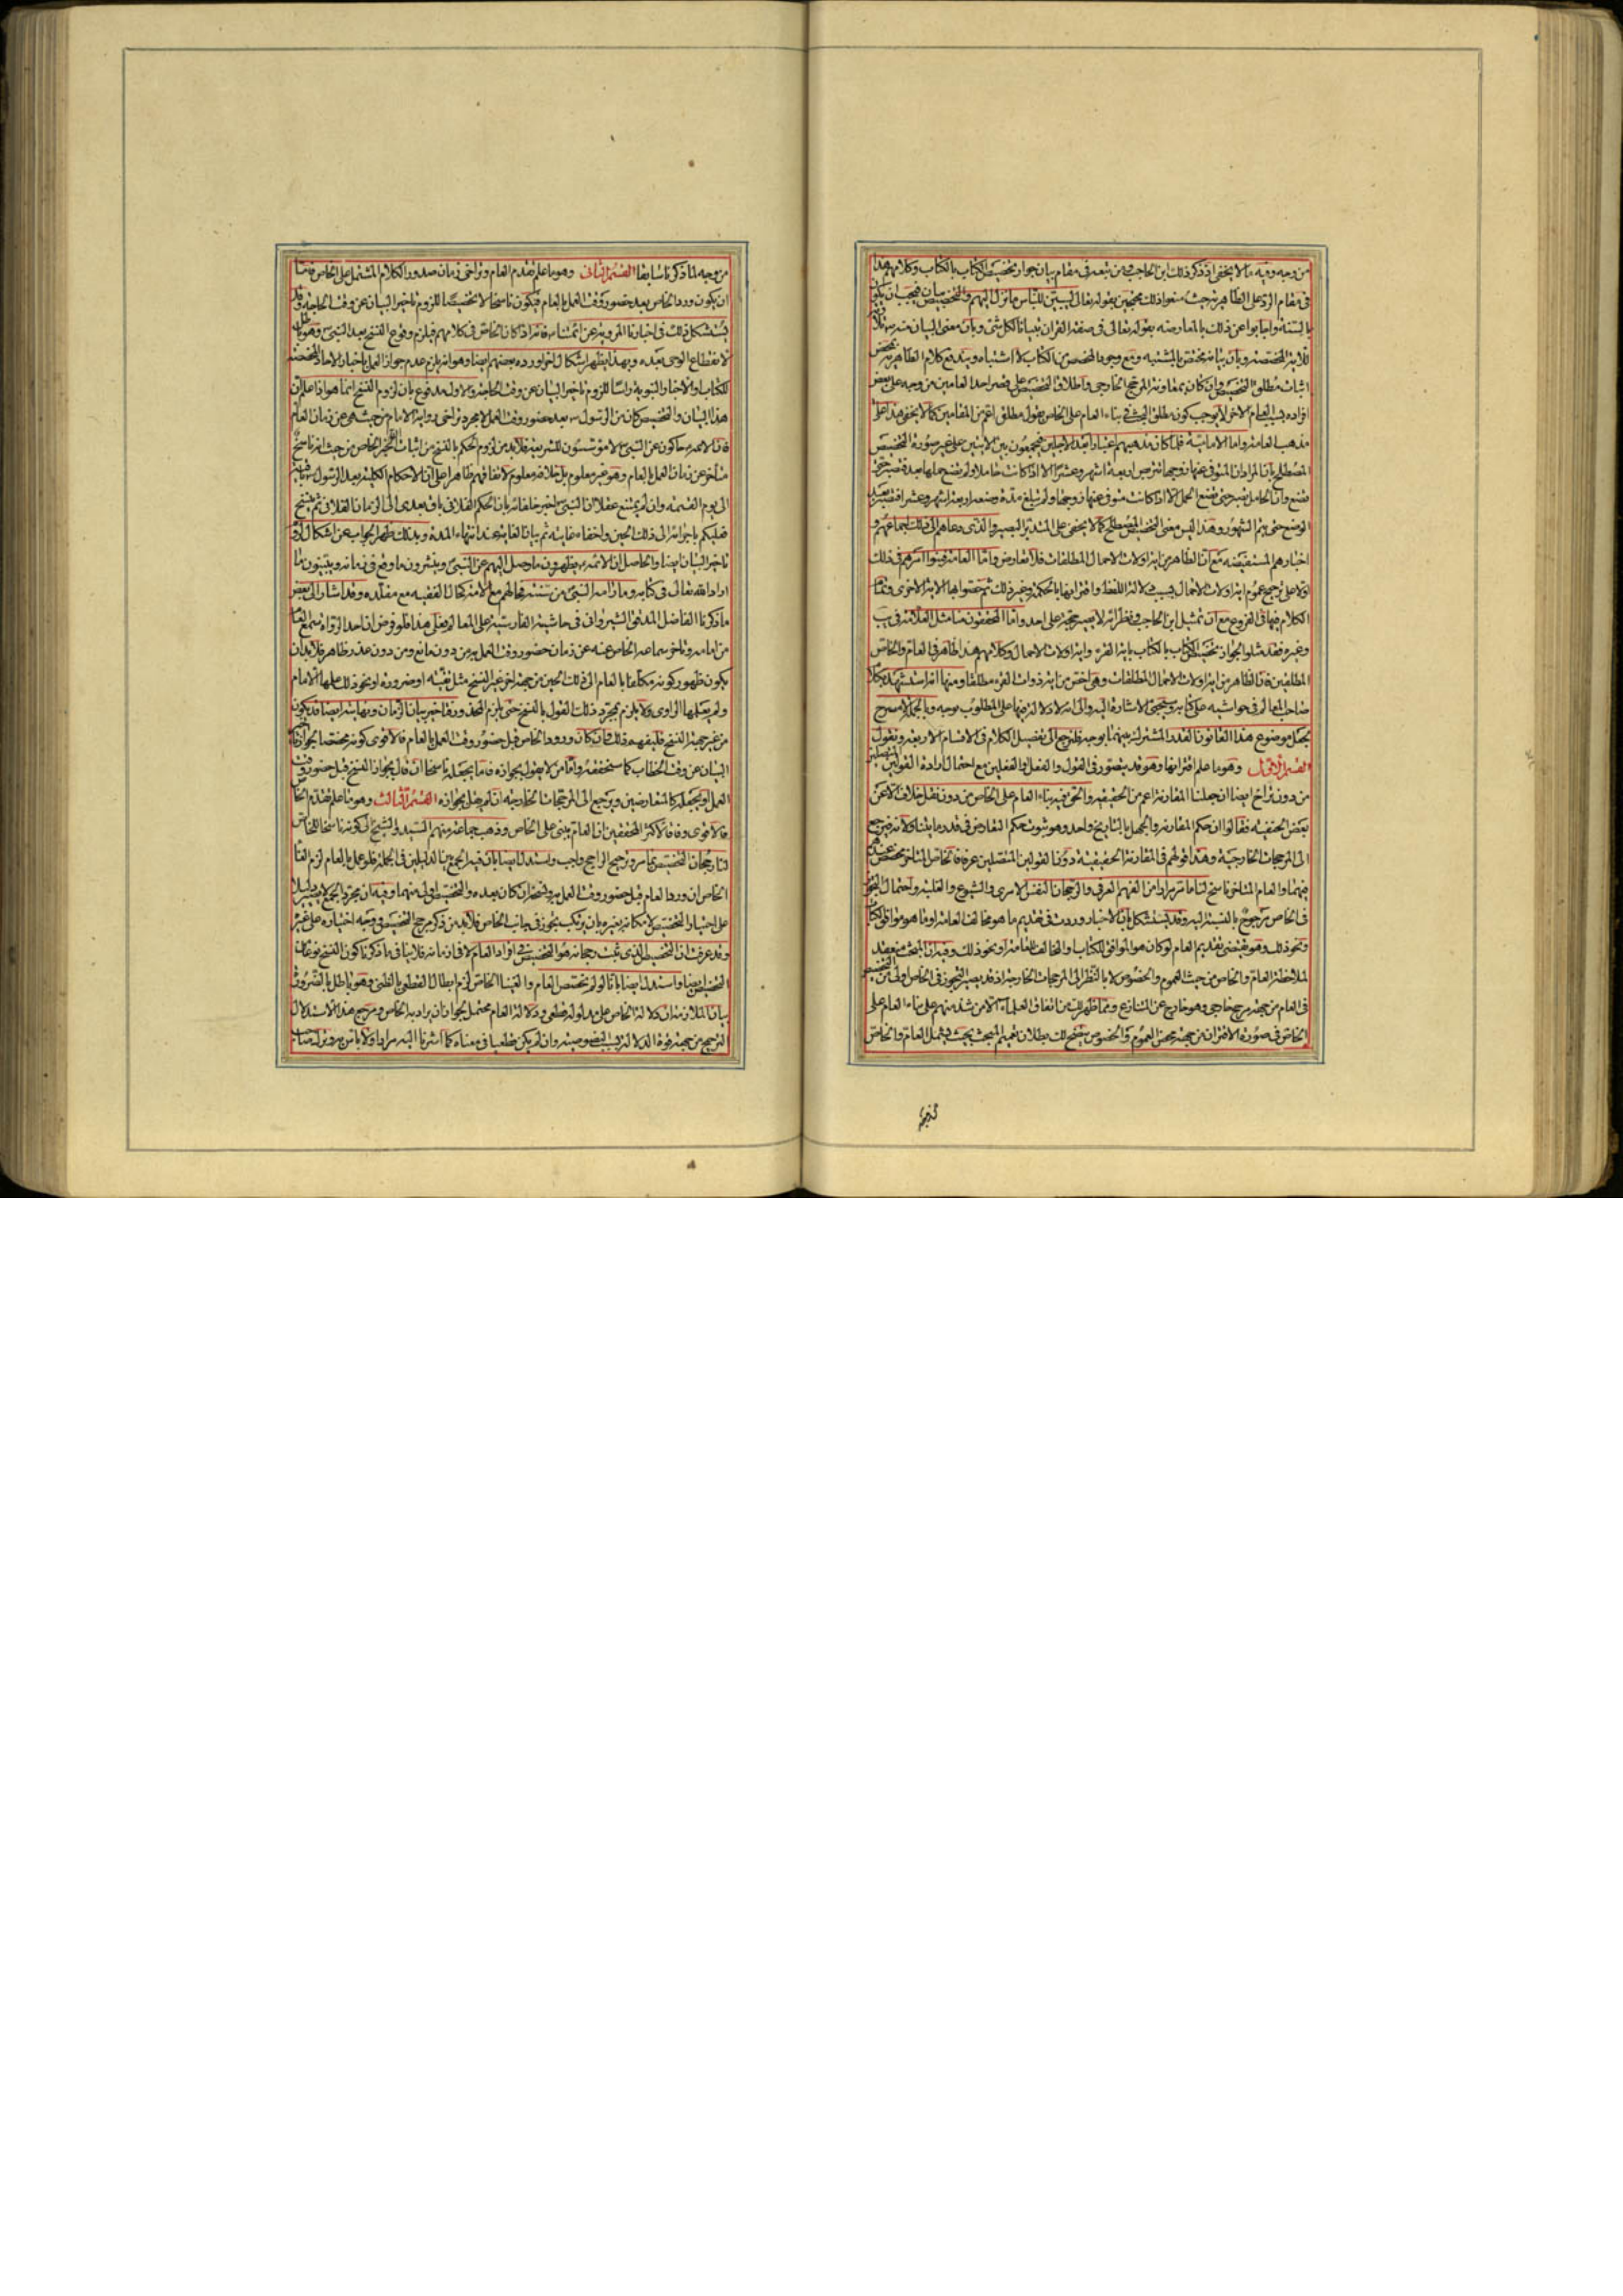 من وجه وفيه ما لا يخفى اذ ذكر ذلك ابن الحاجب ومن تبعه في مقام بيان جواز تخصيص الكتاب بالكتاب وكلامهم هذا
في مقام الرد على الظاهرية حيث منعوا ذلك محتجين بقوله تعالى لتبين للناس ما نزل اليهم والتخصيص بيان فيجب ان يكون
بالسنة واجابوا عن ذلك بالمعارضة بقوله تعالى في صفة القران تبيانا لكل شئ وبان معنى البيان منه
وبان بيانه مختص بالمشتبه ومع وجود المخصص من الكتاب لا اشتباه ويندفع كلام الظاهرية بمحض
اثبات مطلق التخصيص وان كان بمعاونة المرجح الخارجي واطلاق التخصيص على قصر احد العامين من وجه على بعض
افراده بسبب العام الاخر لا يوجب كون مطلق البحث في بناء العام على الخاص بقول مطلق اعم من المقامين كما لا يخفى هذا على
مذهب العامة واما الامامية فلما كان مذهبهم اعتبار ابعد الاجلين فيجمعون بين الايتين على غير صورة التخصيص
المصطلح بان المراد ان المتوفى عنها زوجها تتربص اربعة اشهر وعشرا الا اذا كانت حاملا ولم تضع حملها بعد فتصبر حتى
تضع وان الحامل تصبر حتى تضع الحمل الا اذا كانت متوفى عنها زوجها ولم تبلغ مدة وضعه اربعة اشهر وعشرا فتصبر بعد
الوضع حتى يتم الشهور وهذا ليس معنى التخصيص المصطلح كما لا يخفى على المتدبر البصير والذي دعاهم الى ذلك اجماعهم و
اخبارهم المستفيضة مع ان الظاهر من اية اولات الاحمال المطلقات فلا تعارض واما العامة فبنوا امرهم في ذلك
اولا على ترجيح عموم اية اولات الاحمال بسبب دلالة اللفظ واقترانها بالحكمة وغير ذلك ثم خصوا بها الاية الاخرى وتمام
الكلام فيها في الفروع مع ان تمثيل ابن الحاجب في نظرائه لا يصير حجة على احد واما المحققون منا مثل العلامة في يب
وغيره فقد مثلوا لجواز تخصيص الكتاب بالكتاب باية القرء واية اولات الاحمال وكلامهم هذا ظاهر في العام والخاص
المطلقين فان الظاهر من اية اولات الاحمال المطلقات وهي اخص من اية ذوات القرء مطلقا ومنها انه استشهد بكلام
صاحب المعالم في حواشيه على كتابه وستجئ الاشارة اليه والى انه لا دلالة فيها على المطلوب بوجه وبالجملة لا مسرح
لجعل موضوع هذا القانون القدر المشترك بينهما بوجه فلنرجع الى تفصيل الكلام في الاقسام الاربعة ونقول
القسم الاول وهو ما علم اقترانهما وهو قد يتصور في القول والفعل والفعلين مع احتمال ارادة القولين المتصلين
من دون تراخ ايضا ان جعلنا المقارنة اعم من الحقيقية والحق فيه بناء العام على الخاص من دون نقل خلاف الا عن
بعض الحنفية فقالوا ان حكم المقارنة والجهل بالتاريخ واحد وهو ثبوت حكم التعارض في قدر ما يتناولانه فيرجع
الى المرجحات الخارجية وهذا قولهم في المقارنة الحقيقية دون القولين المتصلين عرفا فالخاص المتاخر مخصص عندهم
فيهما والعام المتاخر ناسخ لنا ما تقدم مرارا من الفهم العرفي والرجحان النفس الامري والشيوع والغلبة واحتمال التجوز
في الخاص مرجوح بالنسبة اليه وقد يستشكل بان الاخبار وردت في تقديم ما هو مخالف العامة او ما هو موافق الكتاب
ونحو ذلك وهو يقتضي تقديم العام لو كان هو الموافق للكتاب والمخالف للعامة او نحو ذلك وفيه ان البحث منعقد
لملاحظة العام والخاص من حيث العموم والخصوص لا بالنظر الى المرجحات الخارجية اذ قد يصير التجوز في الخاص اولى من التخصيص
في العام من جهة مرجح خارجي وهو خارج عن المتنازع ومما ظهر لك من اتفاق العلماء الا من شذ منهم على بناء العام على
الخاص في صورة الاقتران من جهة محض العموم والخصوص يتضح لك بطلان تعميم المبحث بحيث يشمل العام والخاص
من وجه لما ذكرنا سابقا القسم الثاني وهو ما علم تقدم العام وتراخي زمان صدور الكلام المشتمل على الخاص فاما
ان يكون ورود الخاص بعد حضور وقت العمل بالعام فيكون ناسخا لا تخصيصا للزوم تاخير البيان عن وقت الحاجة وقد
يستشكل ذلك في اخبارنا المروية عن ائمتنا فانه اذا كان الخاص في كلامهم فيلزم وقوع النسخ بعد النبي وهو باطل
لانقطاع الوحي بعده وبهذا يظهر اشكال اخر اورده بعضهم ايضا وهو انه يلزم عدم جواز العمل باخبار الاحاد المخصصة
للكتاب او الاخبار النبوية راسا للزوم تاخير البيان عن وقت الحاجة والاول مدفوع بان لزوم النسخ انما هو اذا علم ان
هذا البيان والتخصيص كان من الرسول بعد حضور وقت العمل لا مجرد تراخي رواية الامام من حيث هي عن زمان العام
فان الائمة حاكون عن النبي لا مؤسسون للشريعة فلا بد من لزوم الحكم بالنسخ من اثبات الخاص من حيث انه ناسخ
متاخر عن زمان العمل بالعام وهو غير معلوم بل خلافه معلوم لاتفاقهم ظاهرا على ان الاحكام الكلية بعد الرسول باقية
الى يوم القيمة وان لم يمتنع عقلا ان النبي اخبر خلفائه بان الحكم الفلاني باق بعدي الى الزمان الفلاني ثم ينسخ
فعليكم باجرائه الى ذلك الحين واخفاء غايته ثم بيان الغاية عند انتهاء المدة وبذلك ظهر الجواب عن اشكال لزوم
تاخير البيان ايضا والحاصل ان الائمة يظهرون ما وصل اليهم عن النبي وينشرون ما وقع في زمانه ويبينون ما
اراد الله تعالى في كتابه وما رامه النبي من سنته فحالهم مع الامة كحال الفقيه مع مقلده وقد اشار الى بعض
ما ذكرنا الفاضل المدقق الشيرواني في حاشيته الفارسية على المعالم فعلى هذا فلو فرض ان احد الرواة سمع العام
من امامه وتاخر سماعه الخاص عنه عن زمان حضور وقت العمل به من دون مانع ومن دون عذر ظاهر فلا بد ان
يكون ظهور كونه مكلفا بالعام الى ذلك الحين من جهة اخر غير النسخ مثل تقية او ضرورة او نحو ذلك علمها الامام
ولم يعلمها الراوي ولا يلزم بمجرد ذلك القول بالنسخ حتى يلزم المحذور وتاخير بيان الزمان ونهايته ايضا قد يكون
من غير جهة النسخ فليفهم ذلك فان كان ورود الخاص قبل حضور وقت العمل بالعام فالاقوى كونه مخصصا لجواز تاخير
البيان عن وقت الخطاب كما ستحققه واما من لا يقول بجوازه فاما يجعله ناسخا ان قال بجواز النسخ قبل حضور وقت
العمل او يجعله كالمتعارضين ويرجع الى المرجحات الخارجية ان لم يقل بجوازه القسم الثالث وهو ما علم تقدم الخاص
فالاقوى وفاقا لاكثر المحققين ان العام يبنى على الخاص وذهب جماعة منهم السيد والشيخ الى كونه ناسخا للخاص
لنا رجحان التخصيص بما مر وترجيح الراجح واجب واستدل ايضا بان فيه الجمع بين الدليلين في الجملة فلو عمل بالعام لزم الغاء
الخاص ان ورد العام قبل حضور وقت العمل به ونسخه ان كان بعده والتخصيص اولى منهما وفيه ان مجرد الجمع لا يصير دليلا
على اختيار التخصيص لامكانه بغيره بان يرتكب تجوز في جانب الخاص فلا بد من ذكر مرجح التخصيص ووجه اختياره على غيره
وقد عرفت ان التخصيص الذي ثبت رجحانه هو التخصيص في افراد العام لا في ازمانه فلا ينافي ما ذكرنا كون النسخ نوعا من
التخصيص ايضا واستدل ايضا بانا لو لم نخصص العام والغينا الخاص لزم ابطال القطعي بالظني وهو باطل بالضرورة
بيان الملازمة ان دلالة الخاص على مدلوله قطعي ودلالة العام محتمل لجواز ان يراد به الخاص ومرجع هذا الاستدلال
الترجيح من جهة قوة الدلالة بسبب النصوصية وان لم يكن قطعيا في معناه كما اشرنا اليه مرارا ولا باس به